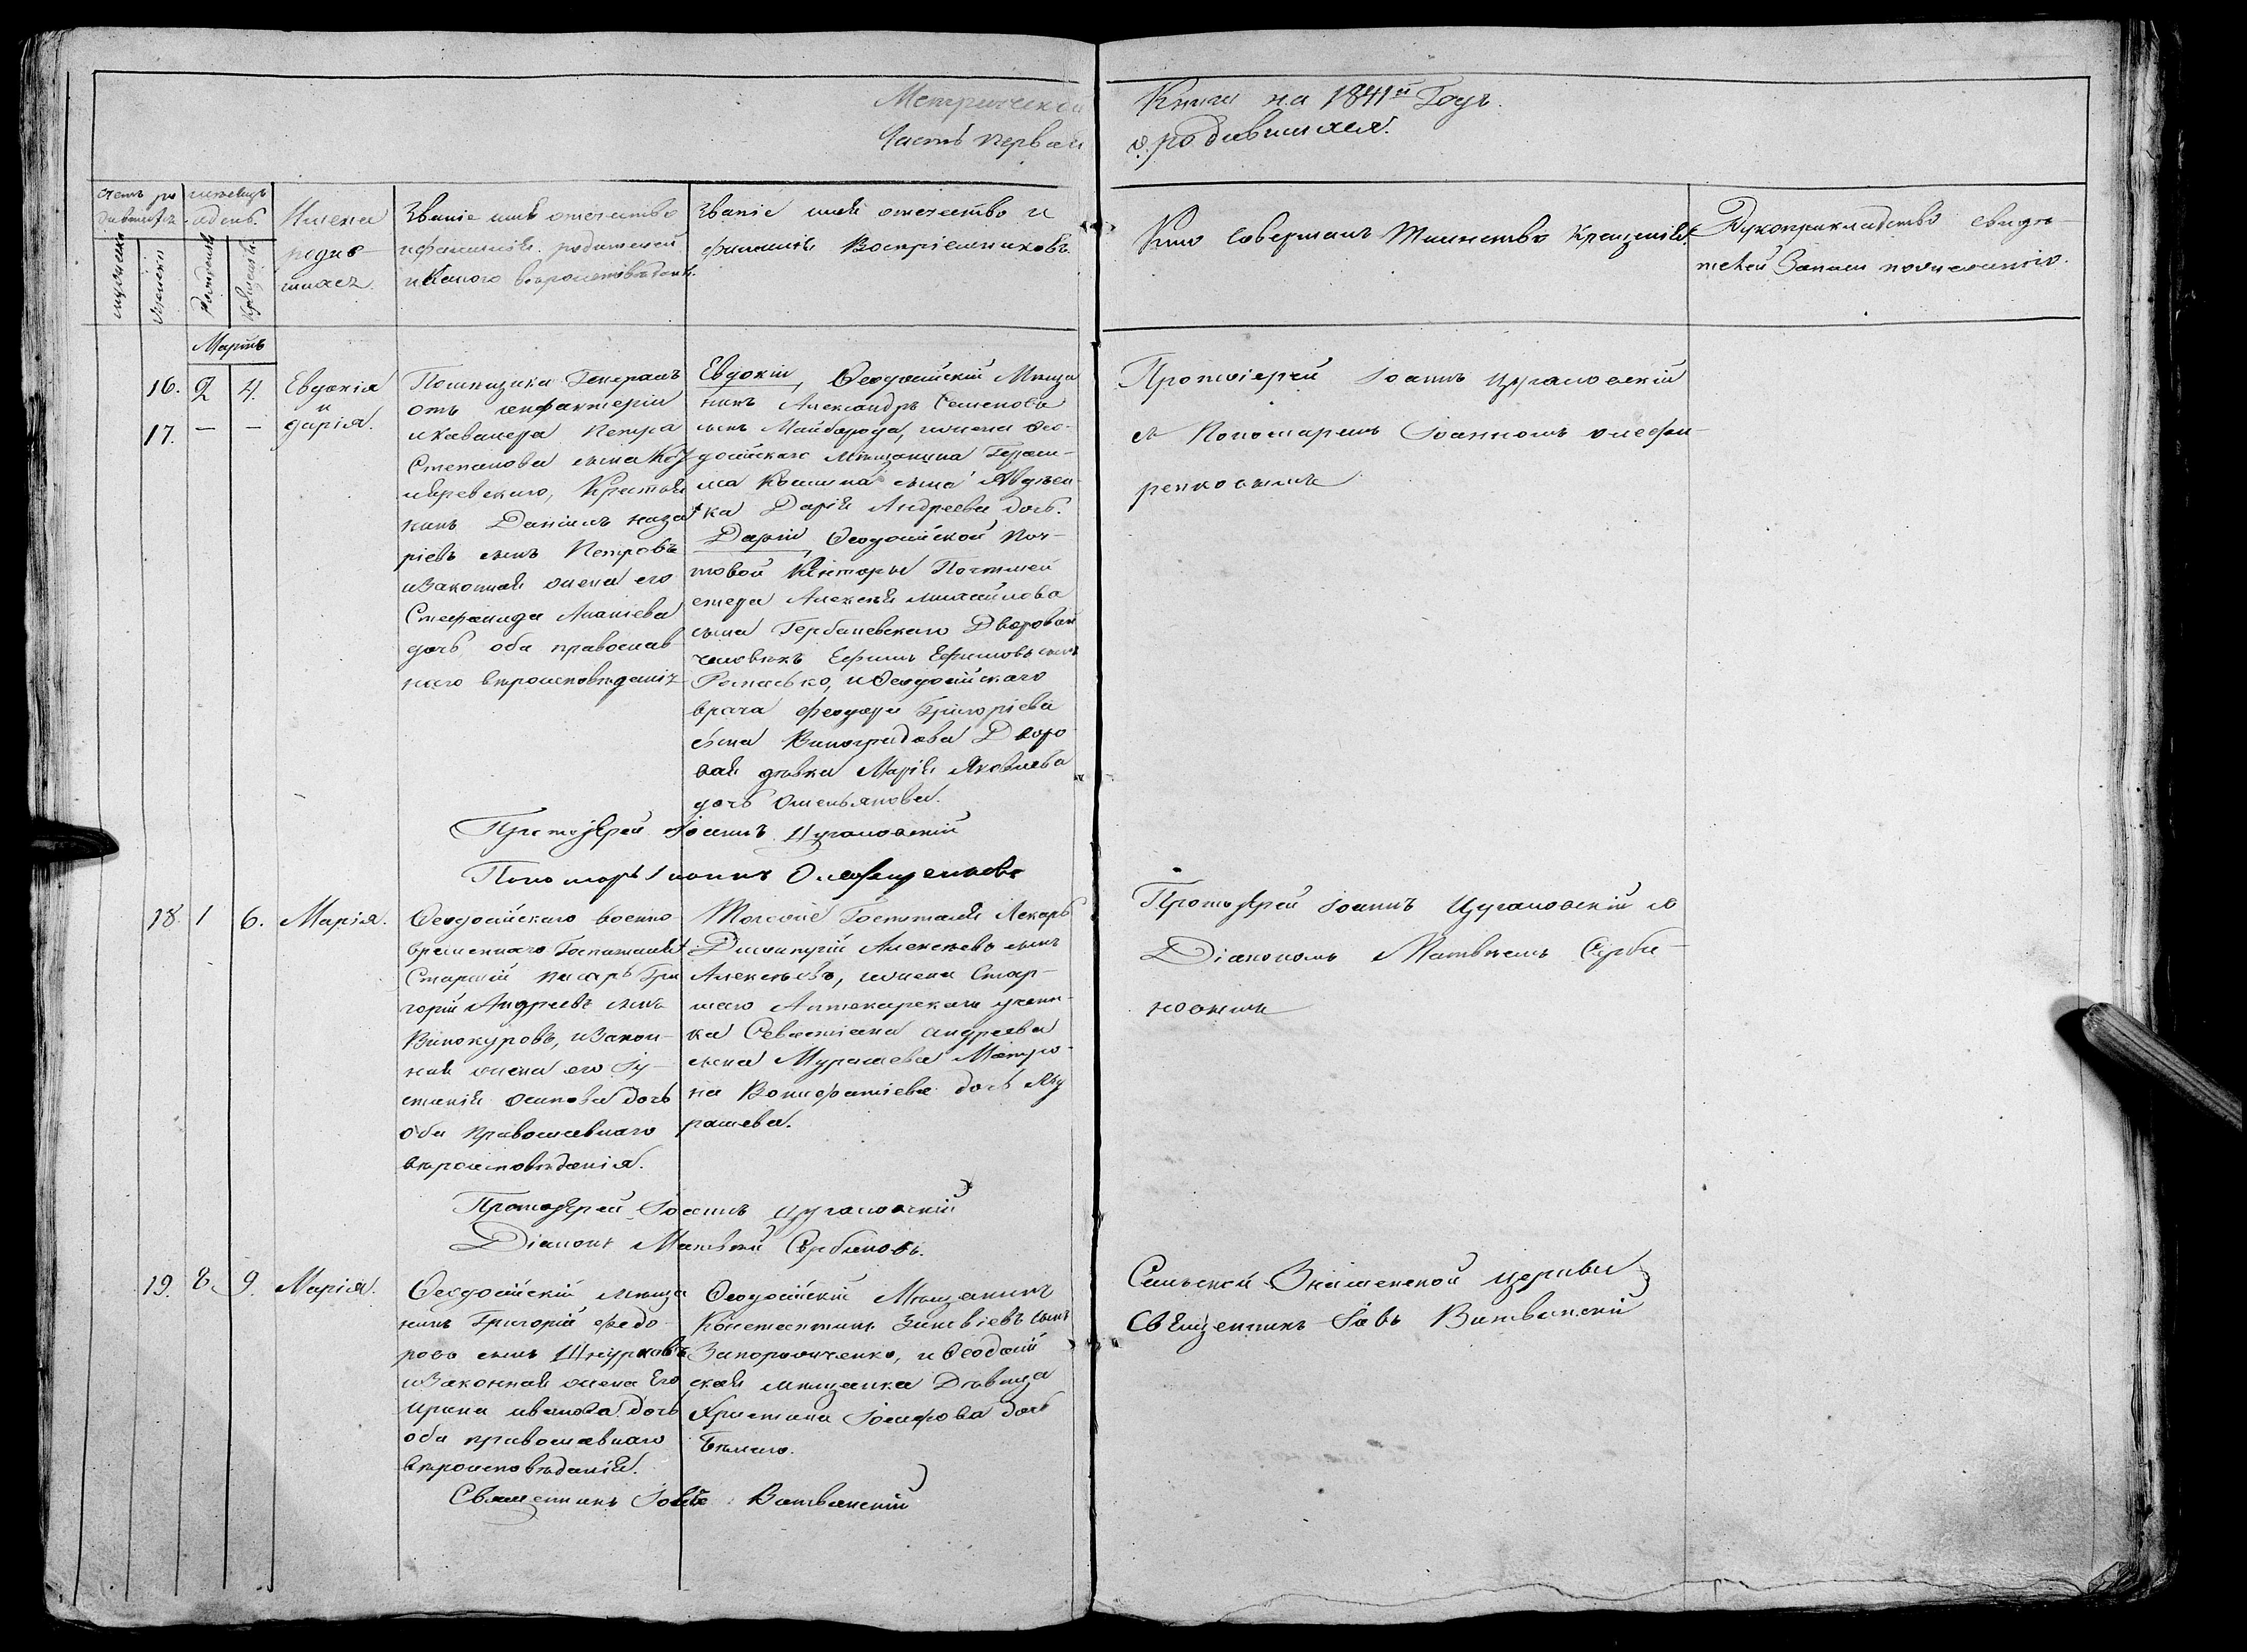 Метрическая Книги на 1841й Годъ.
Часть первая о родившихся.
Счетъ ро-
дившихся
мѣсяцъ
и день.
мужеска
женска
Рожденія
Крещенія
Имена
родив-
шихся.
Званіе имя отечество
и фамилія родителей
и какого вѣроисповѣданія.
Званіе имя отечество и
фамилія Воспріемниковъ.
Кто совершалъ Таинство крещенія.
Рукоприкладство свидѣ-
телей Записи по желанію.
Мартъ
16. 2 4. Евдокія
и
17. — — Дарія.
Помещика Генералъ
отъ инфантеріи
и кавалера Петра
Степанова сына Кот-
ляревскаго, Крестья
нинъ Даніилъ Наза
ріевъ сынъ Петровъ
и Законная жена его
Стефанида Ананіева
дочь оба православ
наго вѣроисповѣданія
Евдокіи, Ѳеодосійскій Мѣща
нинъ Александръ Семеновъ
сынъ Майборода, и жена Ѳео-
досійскаго Мѣщанина Гераси-
ма Косьмина сына
Дарія Андреева дочь.
Даріи, Ѳеодосійской Поч-
товой Конторы Почтмей
стера Алексѣя Михайлова
сына Гербаневскаго Дворовой
человѣкъ Ефимъ Ефимовъ сынъ
Романько, и Ѳеодосійскаго
врача Феодора Григоріева
сына Виноградова Дворо
вая дѣвка Марія Яковлева
дочь Омельянова.
Протоіерей Іоаннъ Цугановскій
съ Пономаремъ Іоанномъ Олефи-
ренковымъ
Протоіерей Іоаннъ Цугановскій
Пономарь Іоаннъ Олефиренковъ
18. 1 6. Марія.
Ѳеодосійскаго военно
временнаго Госпиталя
Старшій писарь Гри
горій Андреевъ сынъ
Винокуровъ, и Закон-
ная жена его Іу-
стинія Осипова дочь
оба православнаго
вѣроисповѣданія.
Тогоже Госпиталя Лекарь
Димитрій Алексѣевъ сынъ
Алексѣевъ, и жена Стар-
шаго Аптекарскаго учени-
ка Севастіана Андреева
сына Мурашева Матро-
на Вонифатіева дочь Му
рашева.
Протоіерей Іоаннъ Цугановскій съ
Діакономъ Матвѣемъ Серби-
новымъ
Протоіерей Іоаннъ Цугановскій
Діаконъ Матвѣй Сербиновъ.
19. 8. 9. Марія.
Ѳеодосійскій мѣща
нинъ Григорій Федо-
ровъ сынъ Шнурковъ
и Законная жена Его
Ирина иванова дочь
оба православнаго
вѣроисповѣданія.
Ѳеодосійскій Мѣщанинъ
Константинъ Зиновіевъ сынъ
Запорожченко, и Ѳеодосій
ская мѣщанка Дѣвица
Христина Іосифова дочь
Бѣлаго.
Сельской Знаменской церкви
Священникъ Іовъ Витванскій
Священникъ Іовъ Витванскій